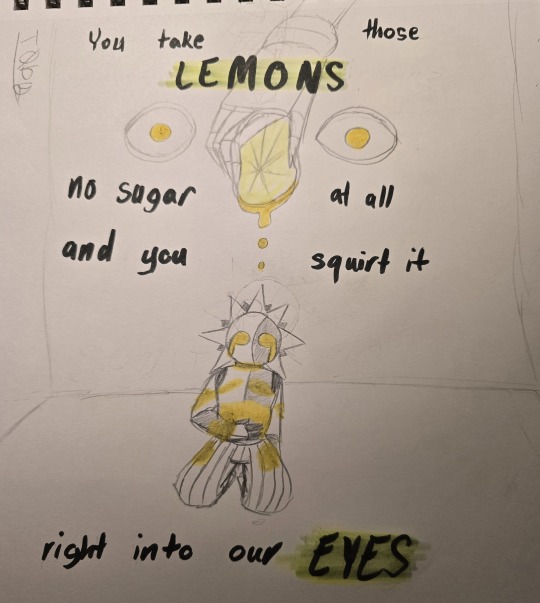 You take those
LEMONS
no sugar at all
and you squirt it
right into our EYES